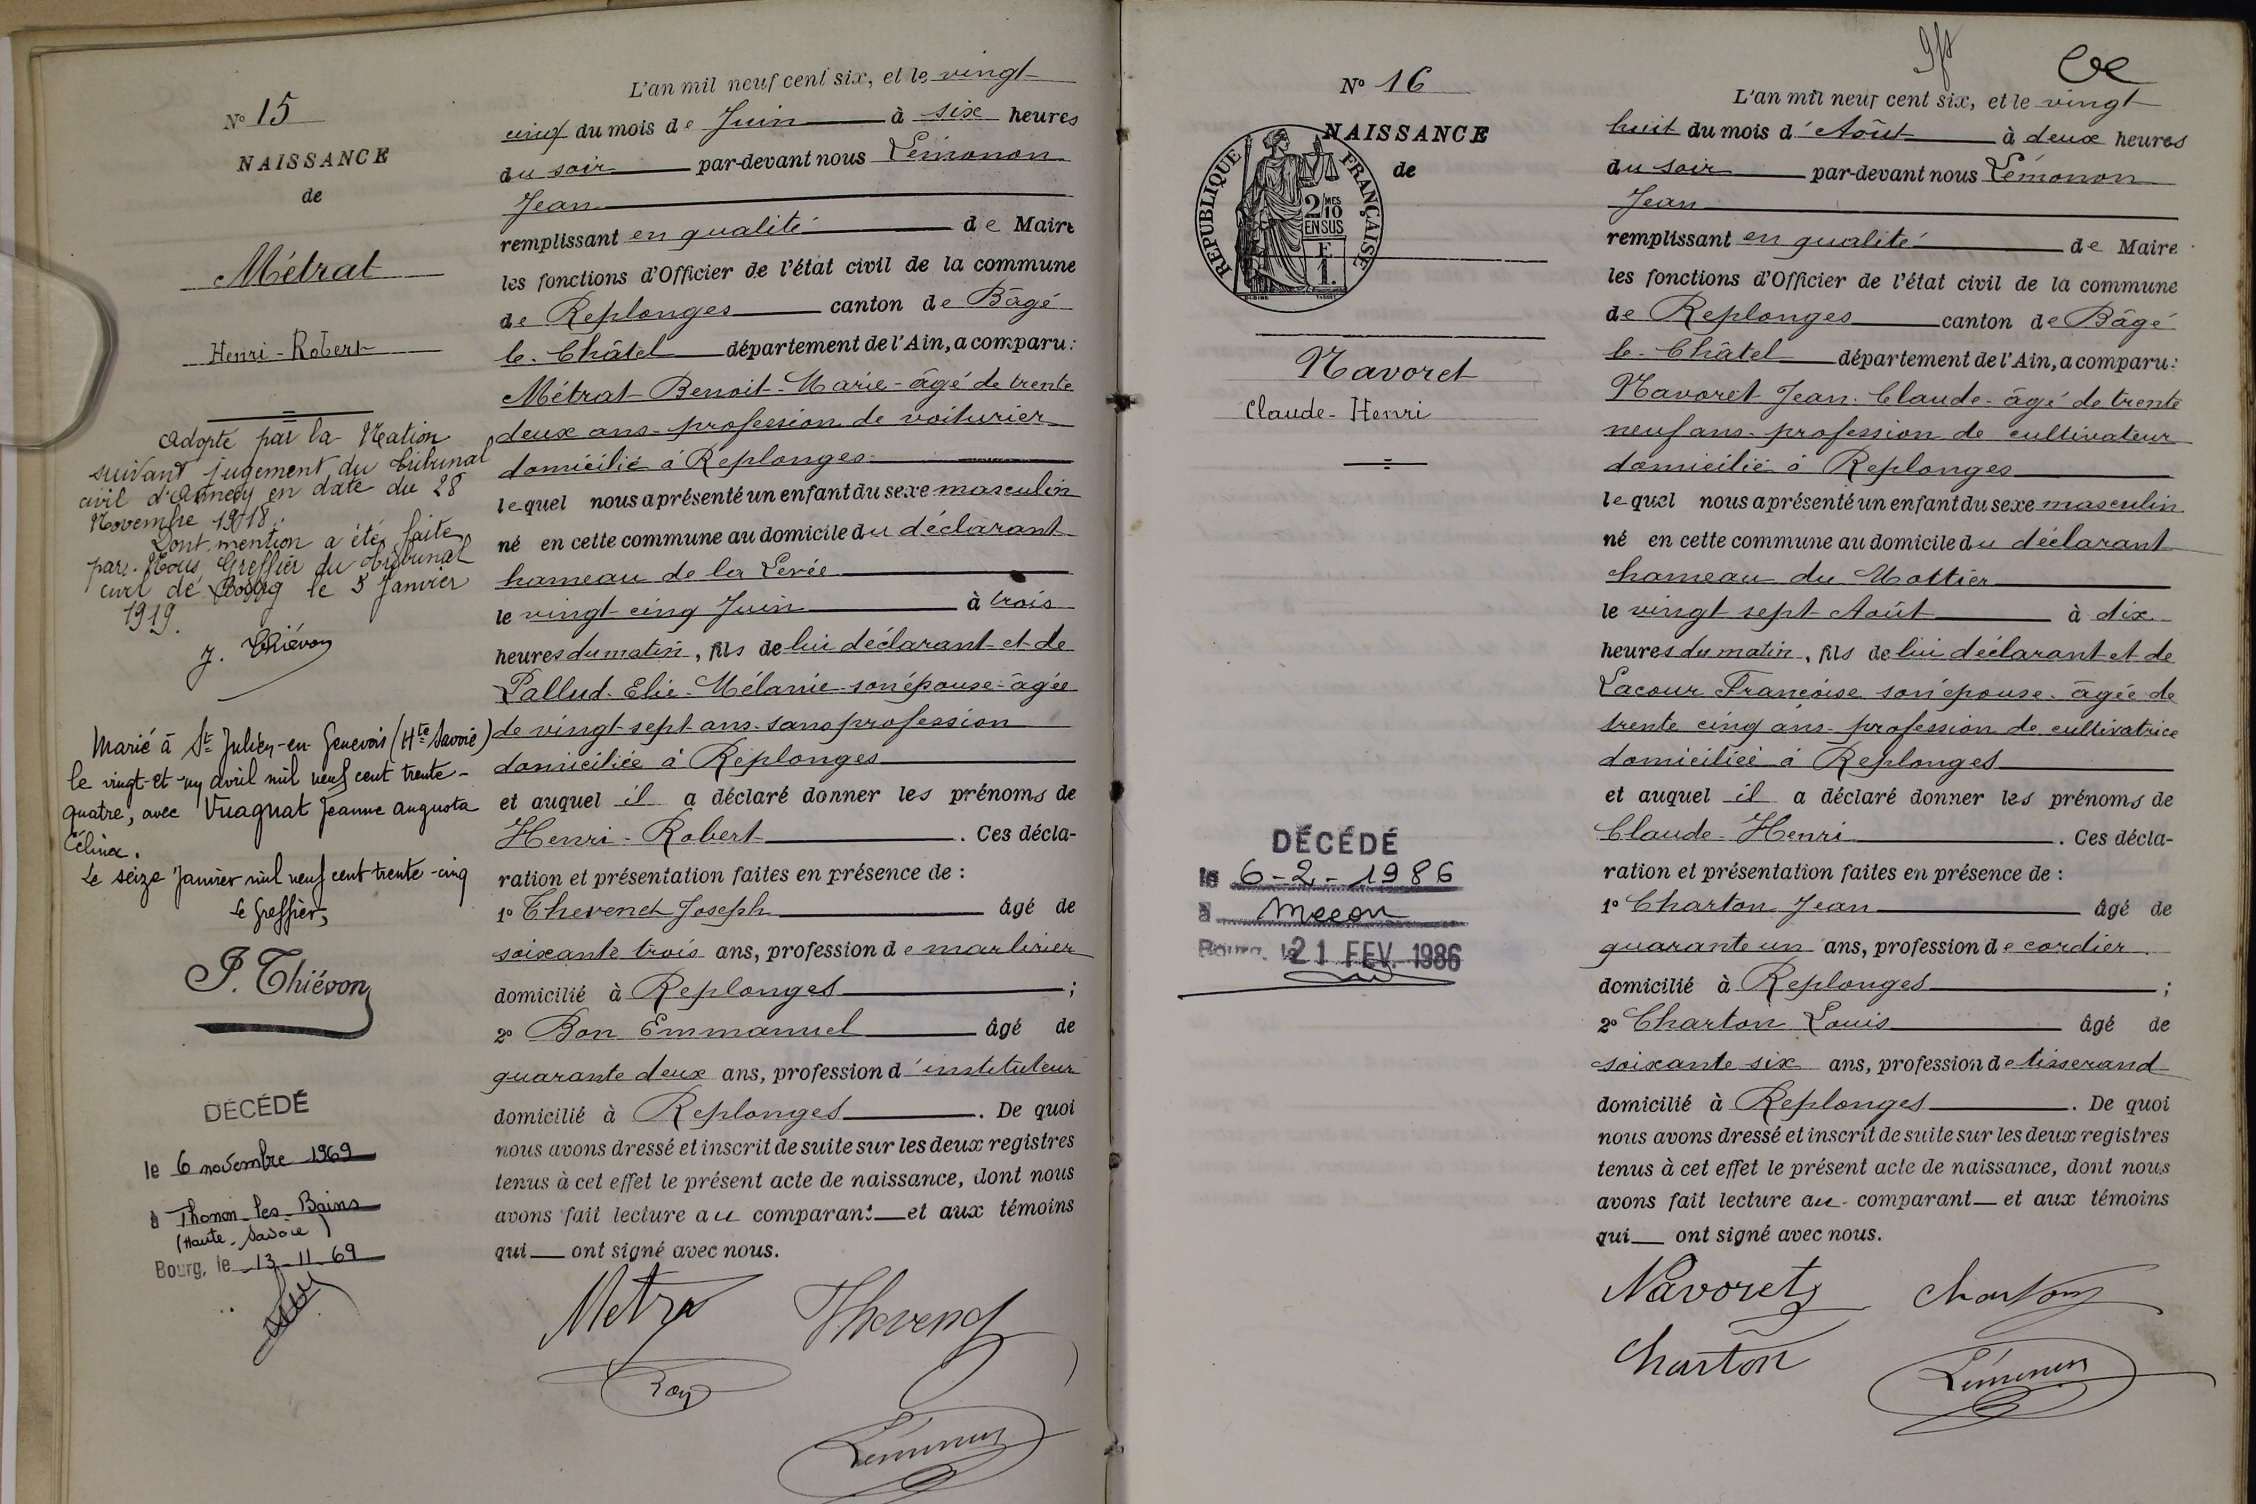 Nº 15
NAISSANCE
de
Métrat
Henri-Robert
Adopté par la Nation
suivant jugement du Tribunal
civil d'Annecy en date du 28
Novembre 1918.
Dont mention a été faite
par Nous, Greffier du Tribunal
civil de Bourg le 5 Janvier
1919.
J. Thiévon
Marié à St Julien-en-Genevois (Hte Savoie)
le vingt-et-un avril mil neuf cent trente-
quatre, avec Vuagnat Jeanne Augusta
Célina.
Le seize Janvier mil neuf cent trente-cinq
Le Greffier,
J. Thiévon
DÉCÉDÉ
le 6 novembre 1969
à Thonon-les-Bains
(Haute-Savoie)
Bourg, le 13-11-69
L'an mil neuf cent six, et le vingt
cinq du mois de Juin à six heures
du soir par-devant nous Lémonon
Jean
remplissant en qualité de Maire
les fonctions d'Officier de l'état civil de la commune
de Replonges canton de Bâgé
le-Châtel département de l'Ain, a comparu:
Métrat Benoit-Marie-âgé de trente
deux ans-profession de voiturier
domicilié à Replonges
lequel nous a présenté un enfant du sexe masculin
né en cette commune au domicile du déclarant
hameau de la Levée
le vingt cinq Juin à trois
heures du matin, fils de lui déclarant et de
Pallud-Elie-Mélanie son épouse-âgée
de vingt-sept ans-sans profession
domiciliée à Replonges
et auquel il a déclaré donner les prénoms de
Henri-Robert. Ces décla-
ration et présentation faites en présence de :
1º Thevenet Joseph âgé de
soixante trois ans, profession de marbrier
domicilié à Replonges ;
2º Bon Emmanuel âgé de
quarante deux ans, profession d'instituteur
domicilié à Replonges. De quoi
nous avons dressé et inscrit de suite sur les deux registres
tenus à cet effet le présent acte de naissance, dont nous
avons fait lecture au comparant et aux témoins
qui ont signé avec nous.
Metra Thevenet
Bon
Lémonon
Nº 16
NAISSANCE
de
RÉPUBLIQUE FRANÇAISE
2/10 MES
EN SUS
F
1.
Navoret
Claude-Henri
DÉCÉDÉ
le 6-2-1986
à Macon
Bourg, le 21 FEV. 1986
L'an mil neuf cent six, et le vingt
huit du mois d'Août à deux heures
du soir par-devant nous Lémonon
Jean
remplissant en qualité de Maire
les fonctions d'Officier de l'état civil de la commune
de Replonges canton de Bâgé
le-Châtel département de l'Ain, a comparu:
Navoret Jean-Claude-âgé de trente
neuf ans-profession de cultivateur
domicilié à Replonges
lequel nous a présenté un enfant du sexe masculin
né en cette commune au domicile du déclarant
hameau du Mottier
le vingt sept Août à dix
heures du matin, fils de lui déclarant et de
Lacour Françoise son épouse-âgée de
trente cinq ans-profession de cultivatrice
domiciliée à Replonges
et auquel il a déclaré donner les prénoms de
Claude-Henri. Ces décla-
ration et présentation faites en présence de :
1º Charton Jean âgé de
quarante un ans, profession de cordier
domicilié à Replonges ;
2º Charton Louis âgé de
soixante six ans, profession de tisserand
domicilié à Replonges. De quoi
nous avons dressé et inscrit de suite sur les deux registres
tenus à cet effet le présent acte de naissance, dont nous
avons fait lecture au comparant et aux témoins
qui ont signé avec nous.
Navoret Charton
Charton
Lémonon